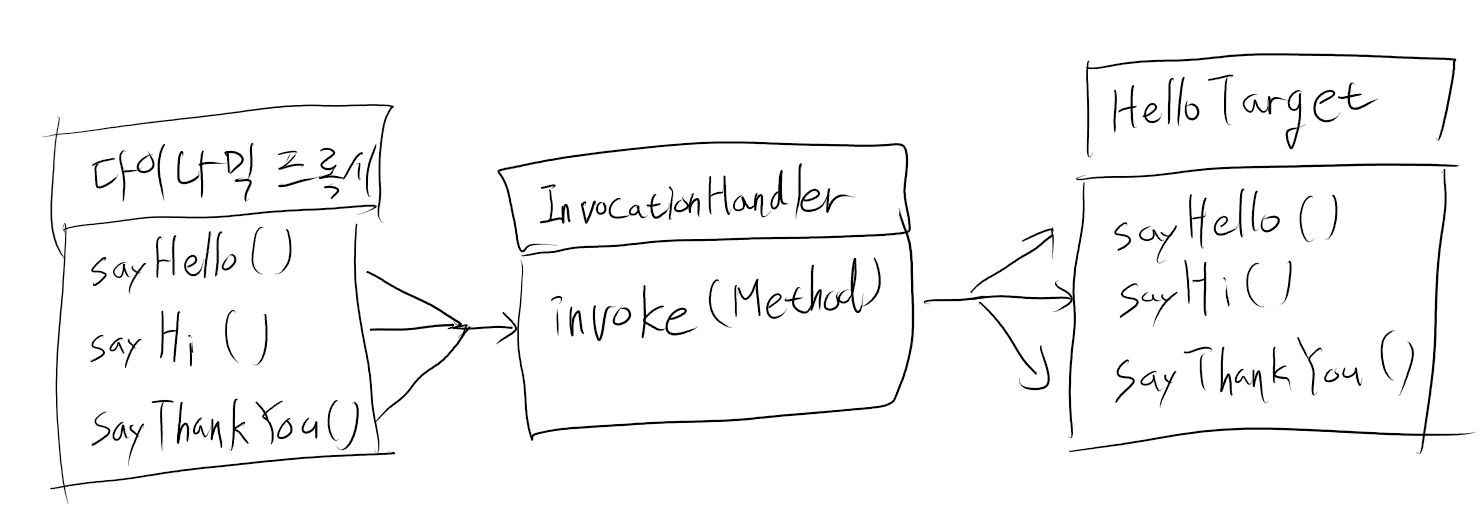 다이나믹 프록시
sayHello()
sayHi()
sayThankYou()
InvocationHandler
invoke(Method)
HelloTarget
sayHello()
sayHi()
sayThankYou()